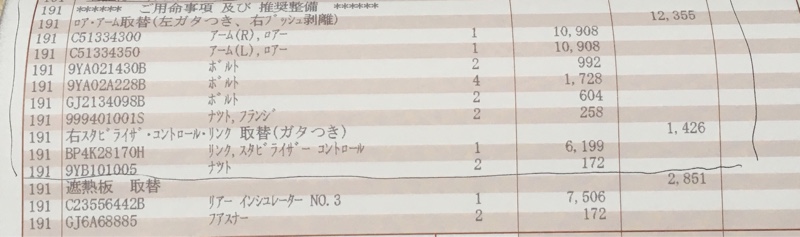 191 ****** ご用命事項 及び 推奨整備 ******
191 ﾛｱ・ｱｰﾑ取替(左ガタつき、右ﾌﾞｯｼｭ剥離) 12,355
191 C51334300 ｱｰﾑ(R),ﾛｱｰ 1 10,908
191 C51334350 ｱｰﾑ(L),ﾛｱｰ 1 10,908
191 9YA021430B ﾎﾞﾙﾄ 2 992
191 9YA02A228B ﾎﾞﾙﾄ 4 1,728
191 GJ2134098B ﾎﾞﾙﾄ 2 604
191 999401001S ﾅﾂﾄ,ﾌﾗﾝｼﾞ 2 258
191 右ｽﾀﾋﾞﾗｲｻﾞ・ｺﾝﾄﾛｰﾙ・ﾘﾝｸ 取替(ガタつき) 1,426
191 BP4K28170H ﾘﾝｸ,ｽﾀﾋﾞﾗｲｻﾞｰ ｺﾝﾄﾛｰﾙ 1 6,199
191 9YB101005 ﾅﾂﾄ 2 172
191 遮熱板 取替 2,851
191 C23556442B ﾘｱｰ ｲﾝｼｭﾚｰﾀｰ NO.3 1 7,506
191 GJ6A68885 ﾌｱｽﾅｰ 2 172